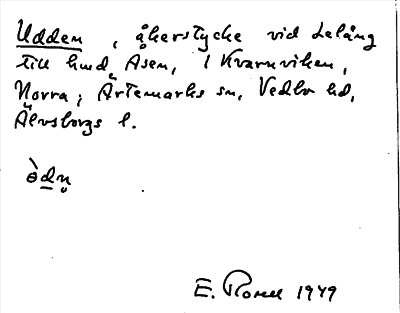 Udden, åkerstycke vid Lelång
till hmd Åsen, i Kvarnviken,
Norra; Ärtemarks sn, Vedbo hd,
Älvsborgs l.
òdn̥
E. 1949